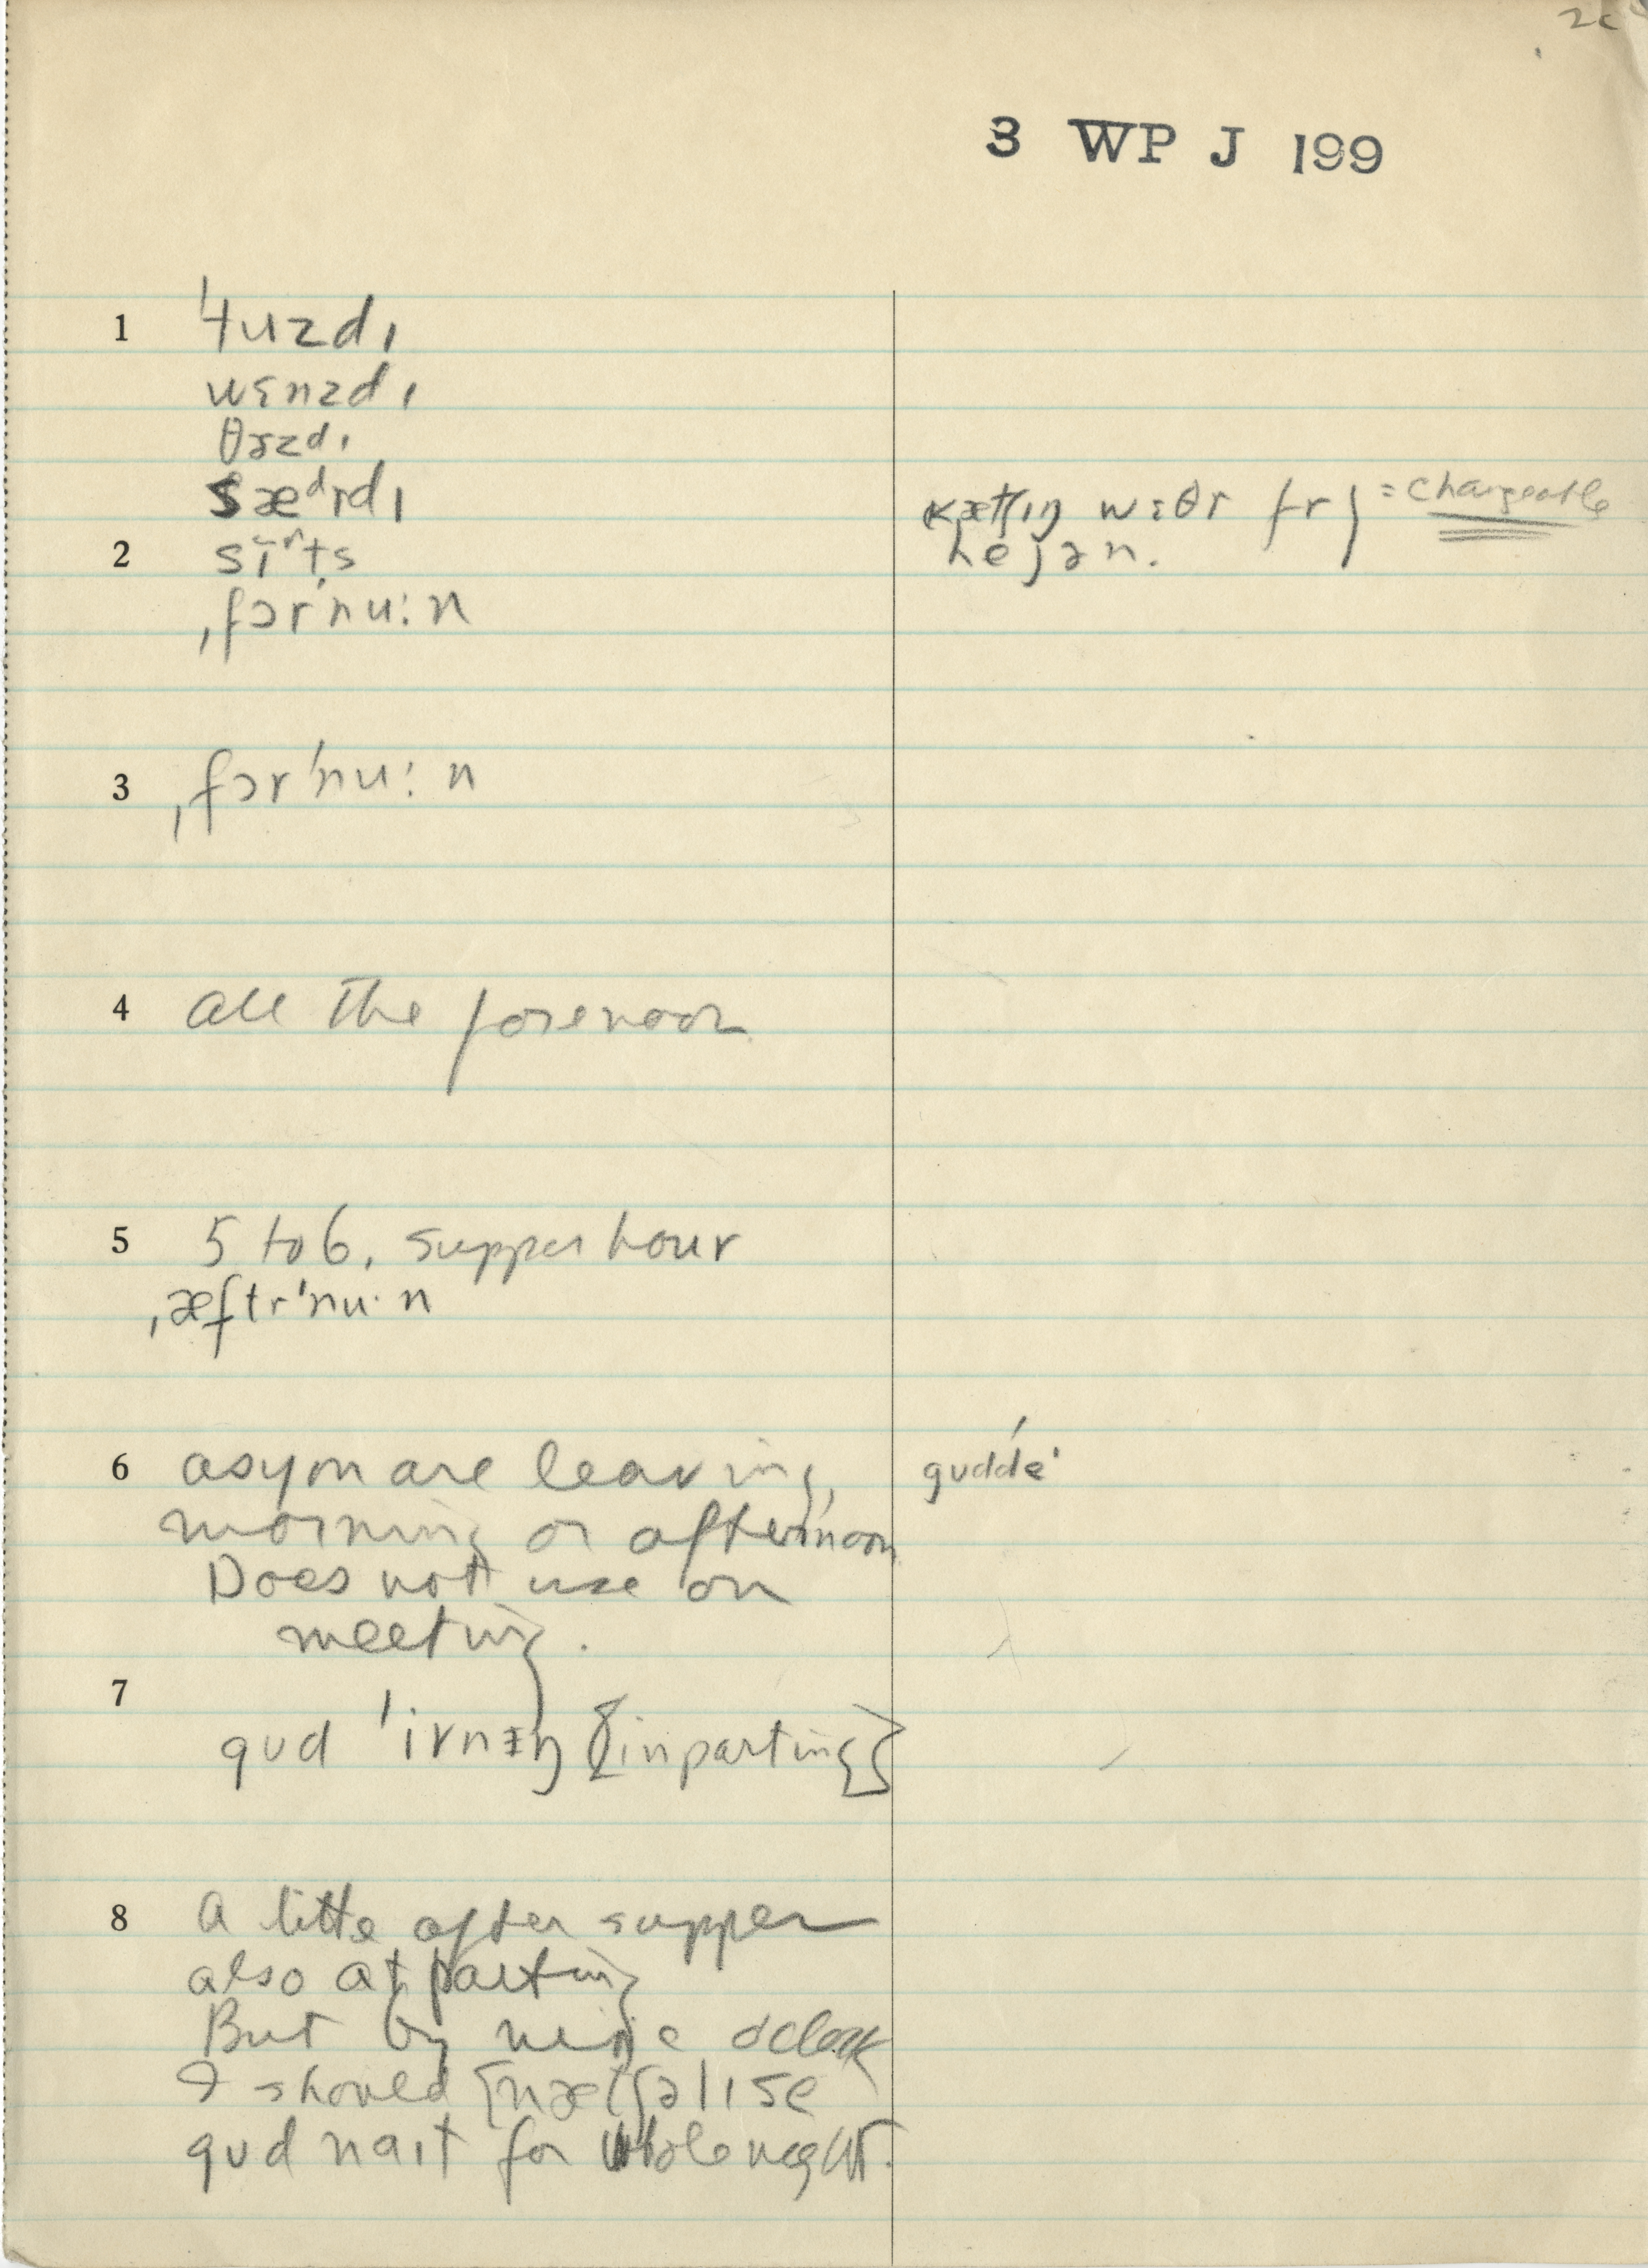 3 WP J 199
1 'tuzdɪ
wɛnzdɪ
θɜzdɪ
sæᵈrdɪ
2
ˌfɔr'nu:n
kætʃɪŋ wɛðr fr } = chargeable
hejən.
3 ˌfɔr'nu:n
4 all the forenoon
5 5 to 6, supper hour
ˌæftr'nu·n
6 as you are leaving,
morning or afternoon
Does not use on
meeting.
gʊddé
7
gʊd 'ivnɪŋ [in parting]
8 A little after supper
also at parting
But by nine o'clock
I should [nætʃəlɪ se
gʊd naɪt for whole night.